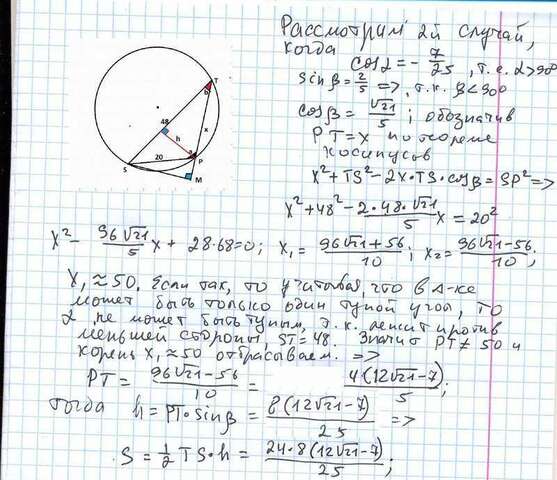 Рассмотрим 2й случай,
когда
cosα = - 7/25, т.е. α>90°
sinβ = 2/5 =>, т.к. β<90°
cosβ = √21/5; обозначив
PT=x по теореме
косинусов
x²+TS²-2x·TS·cosβ = SP² =>
x²+48² - 2·48·√21/5 x = 20²
x² - 96√21/5 x + 28·68=0; x₁ = 96√21+56/10; x₂ = 96√21-56/10;
x₁ ≈ 50. Если так, то учитывая, что в Δ-ке
может быть только один тупой угол, то
α не может быть тупым, т.к. лежит против
меньшей стороны, ST=48. Значит PT≠50 и
корень x₁≈50 отбрасываем. =>
PT = 96√21-56/10 = 4(12√21-7)/5;
тогда h = PT·sinβ = 8(12√21-7)/25 =>
S = 1/2 TS·h = 24·8(12√21-7)/25;
T
b
48
x
h
a
S
20
P
M